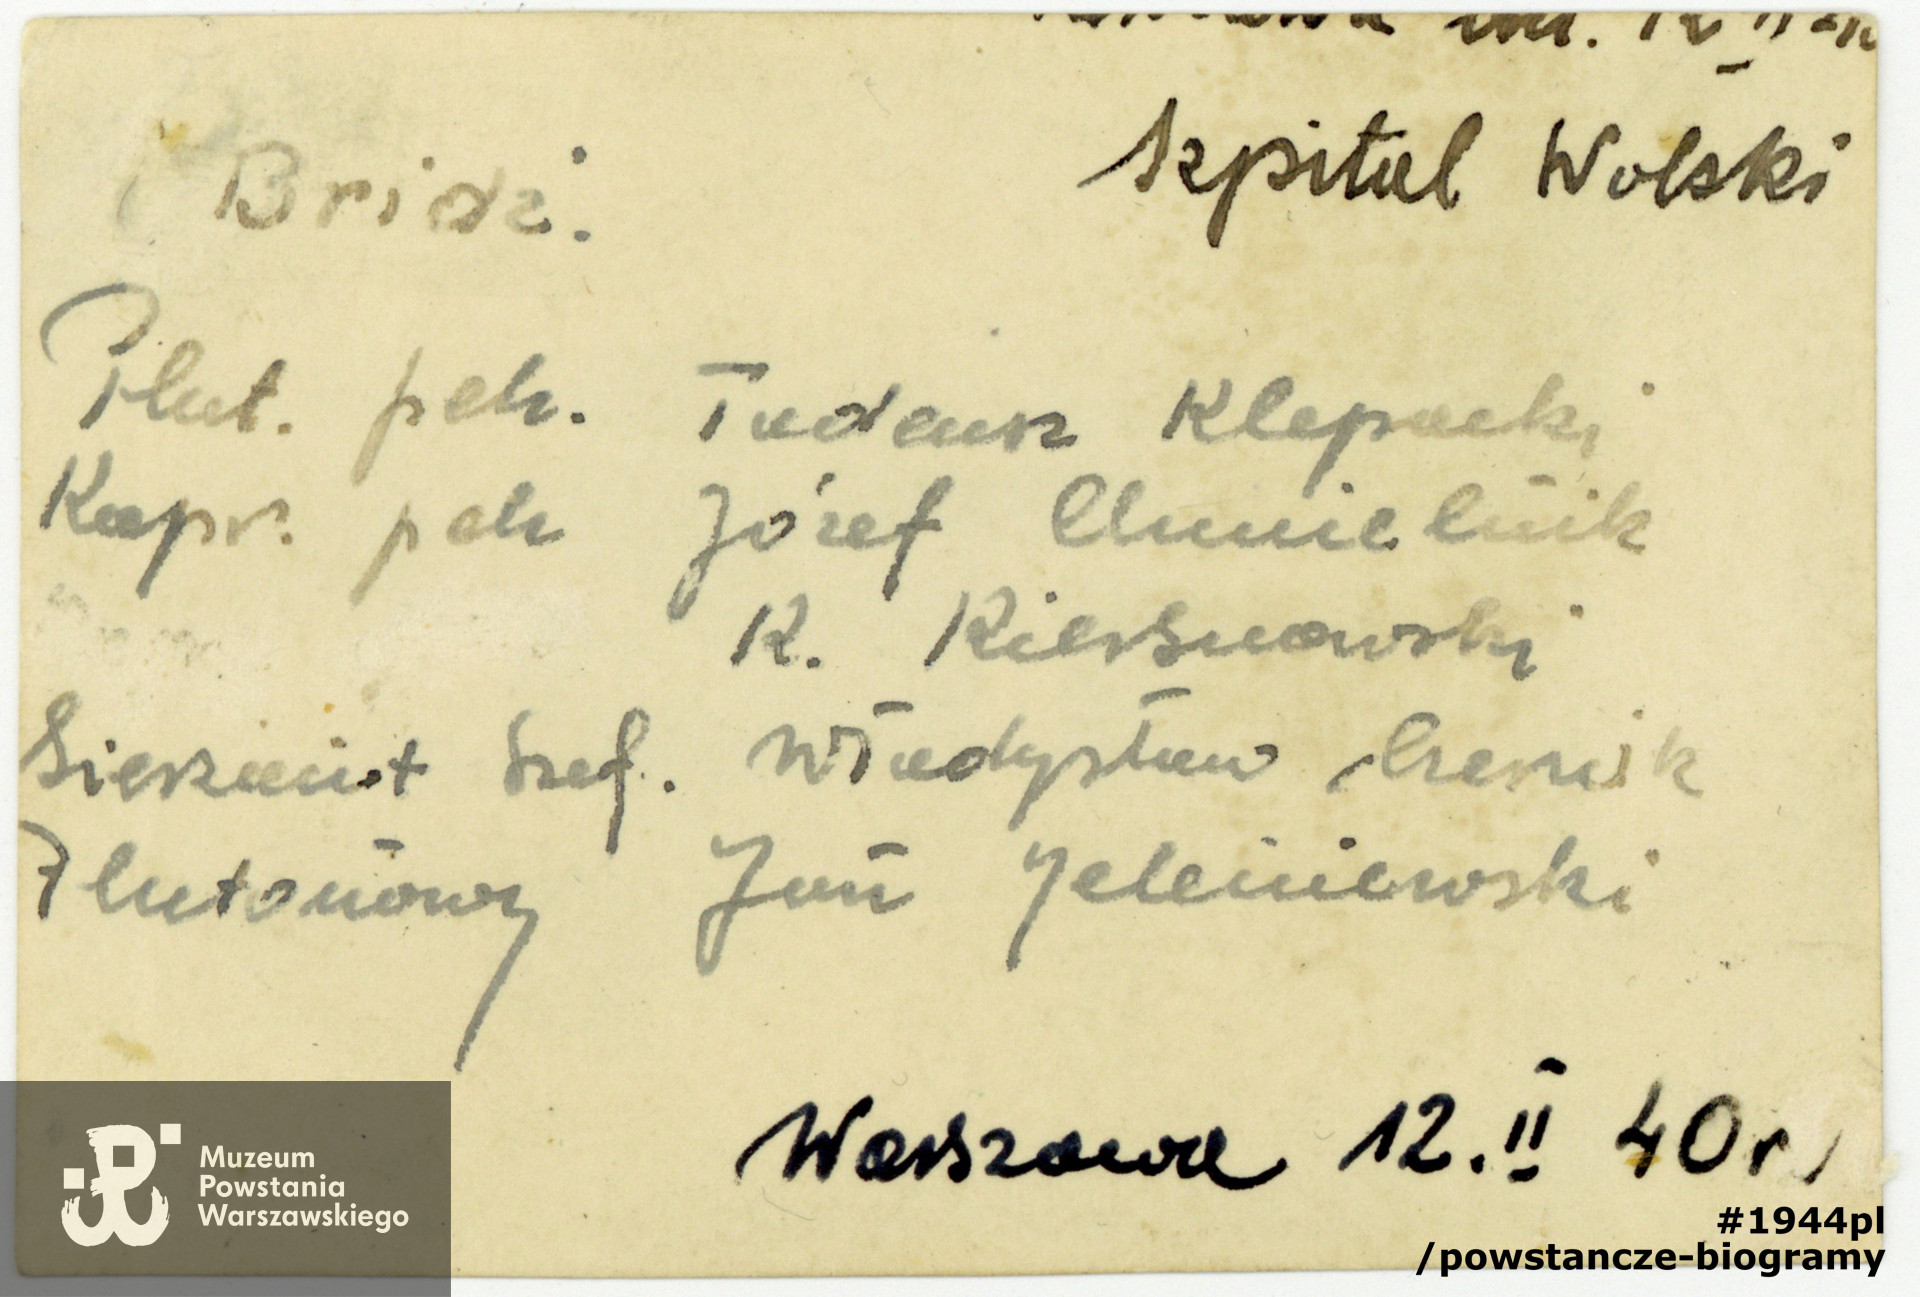 dn. 12 II 40
Szpital Wolski
Bridż:
Plut. pch. Tadeusz Klepacki
Kapr. pch Józef Chmielnik
K. Kiersnowski
Sierżant Szef. Władysław
Plutonowy Jan Jeleniewski
Warszawa 12.II 40 r.
Muzeum
Powstania
Warszawskiego
#1944pl
/powstancze-biogramy